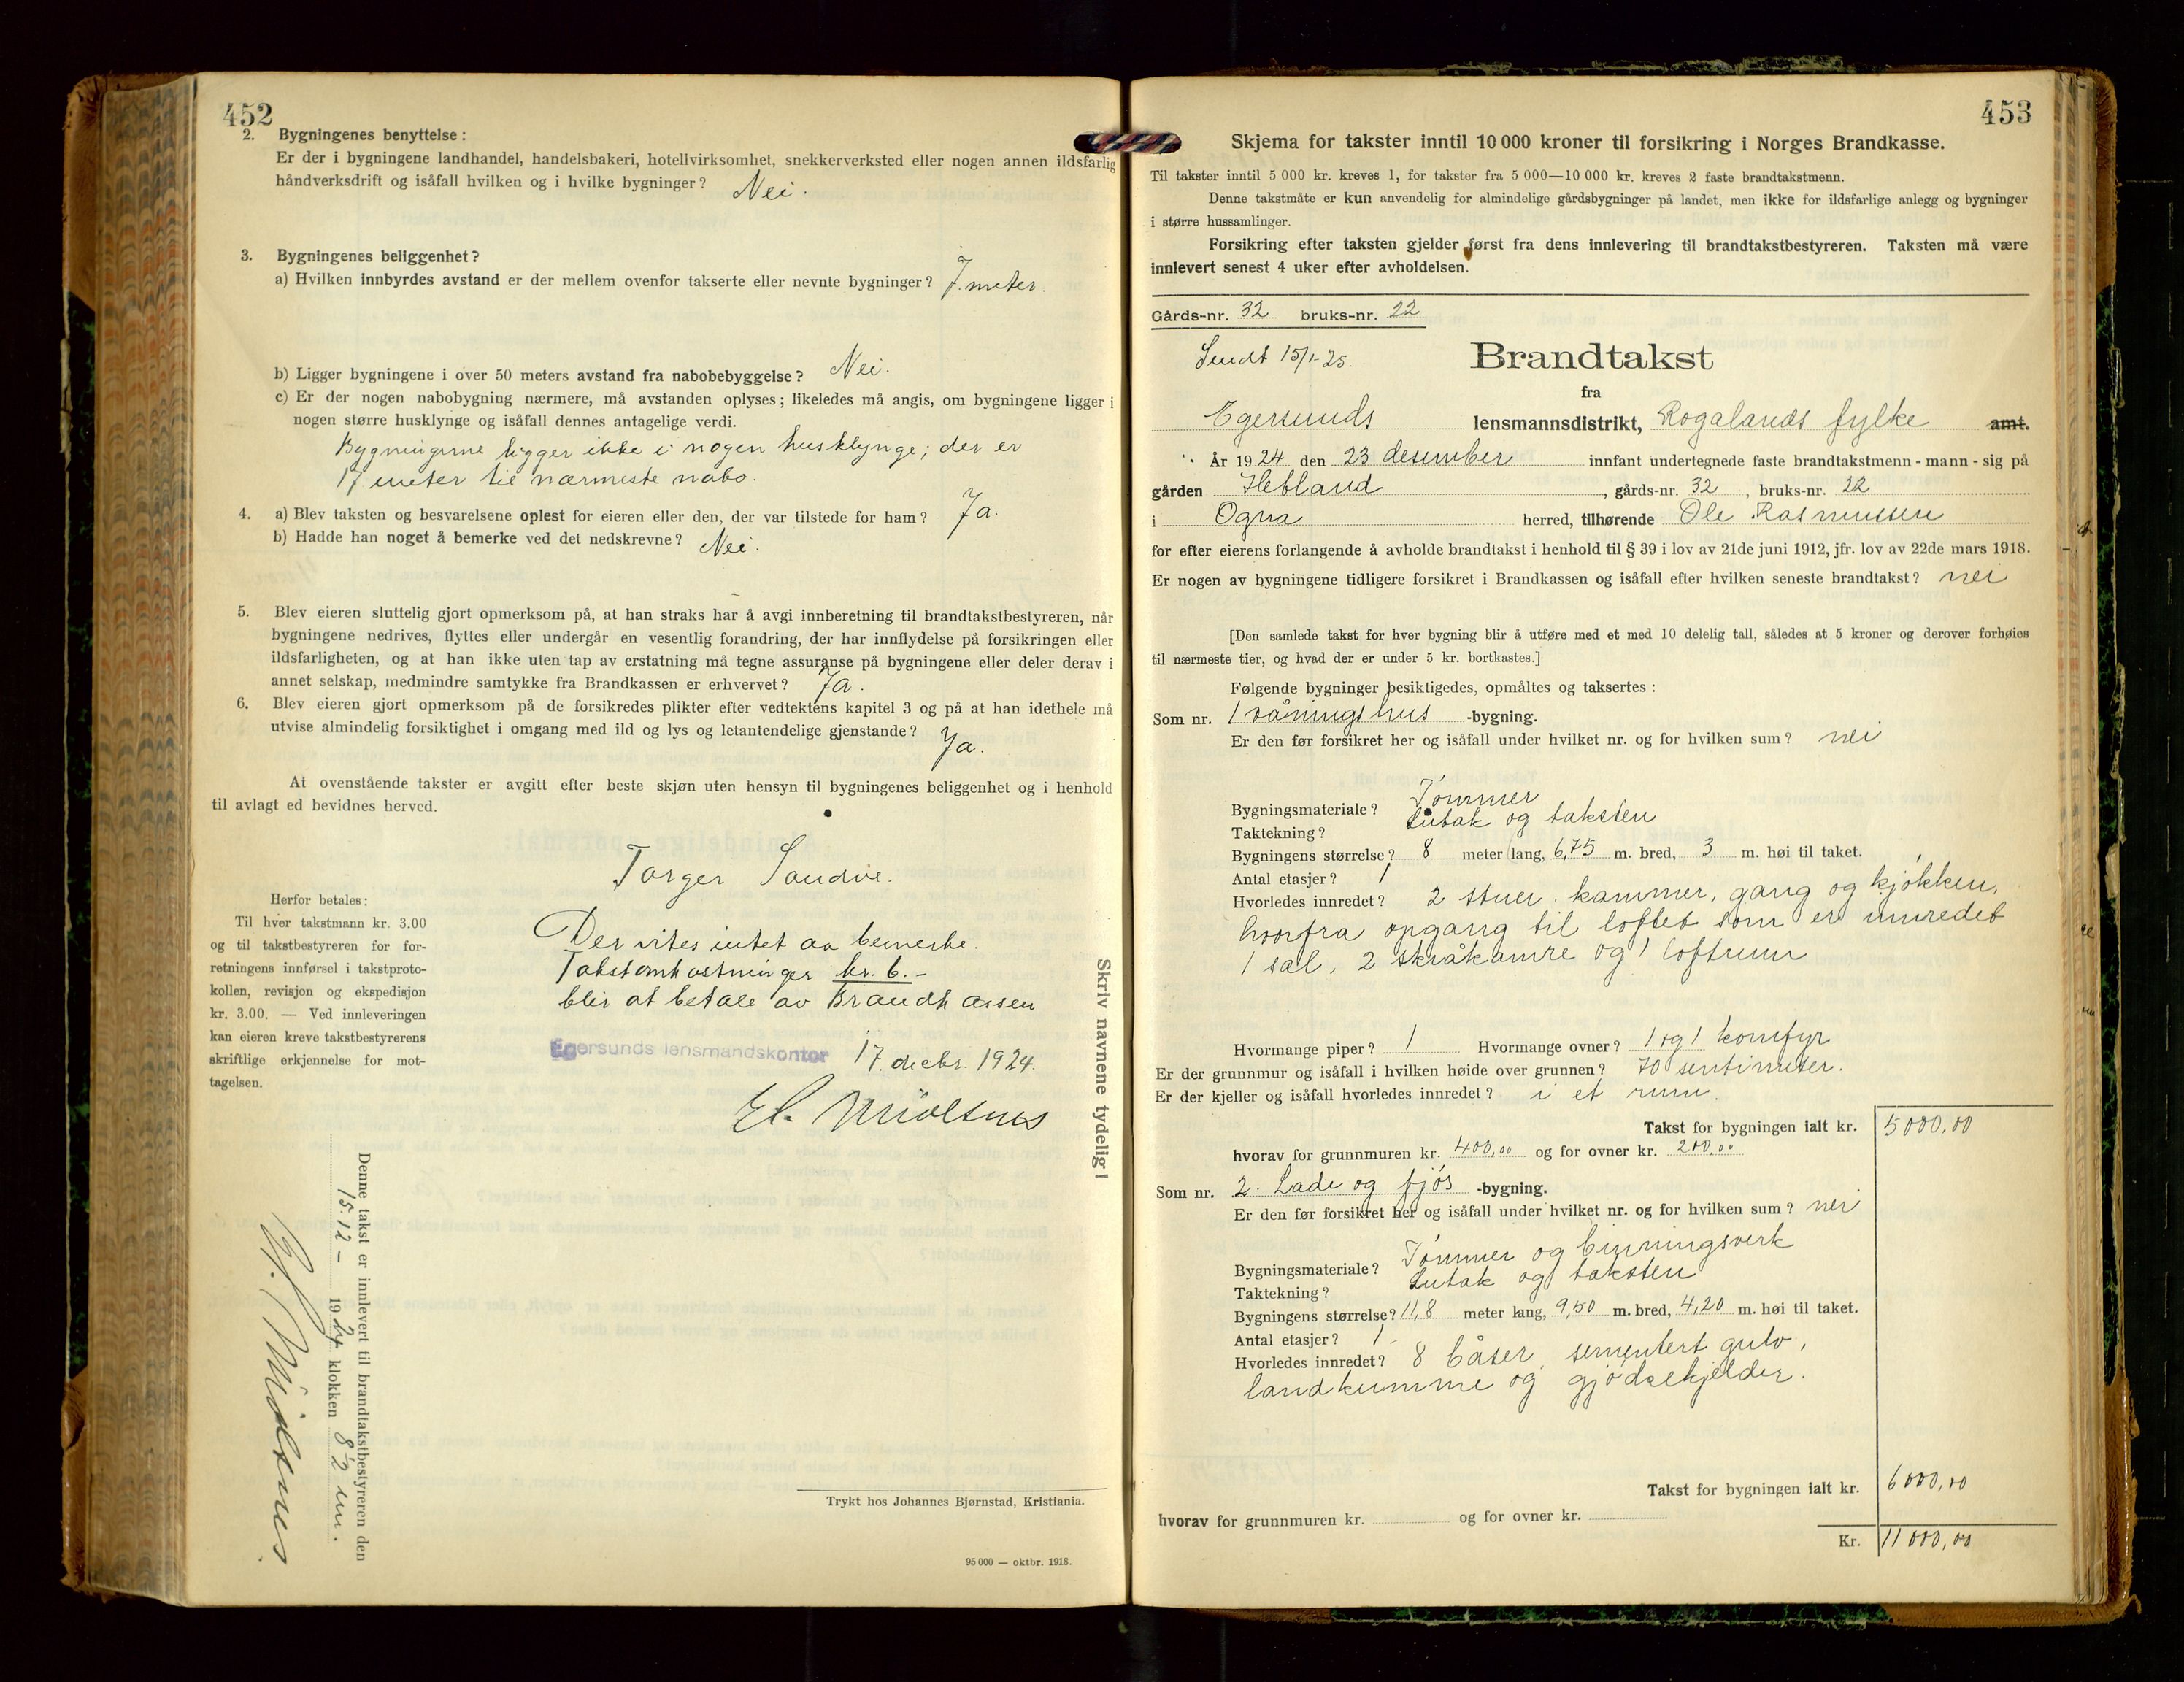 452
2. Bygningenes benyttelse:
Er der i bygningene landhandel, handelsbakeri, hotellvirksomhet, snekkerverksted eller nogen annen ildsfarlig
håndverksdrift og isåfall hvilken og i hvilke bygninger? Nei.
3. Bygningenes beliggenhet?
a) Hvilken innbyrdes avstand er der mellem ovenfor takserte eller nevnte bygninger? 7 meter.
b) Ligger bygningene i over 50 meters avstand fra nabobebyggelse? Nei.
c) Er der nogen nabobygning nærmere, må avstanden oplyses; likeledes må angis, om bygningene ligger i
nogen større husklynge og isåfall dennes antagelige verdi.
Bygningerne ligger ikke i nogen husklynge; der er
17 meter til nærmeste nabo.
4. a) Blev taksten og besvarelsene oplest for eieren eller den, der var tilstede for ham? Ja.
b) Hadde han noget å bemerke ved det nedskrevne? Nei.
5. Blev eieren sluttelig gjort opmerksom på, at han straks har å avgi innberetning til brandtakstbestyreren, når
bygningene nedrives, flyttes eller undergår en vesentlig forandring, der har innflydelse på forsikringen eller
ildsfarligheten, og at han ikke uten tap av erstatning må tegne assuranse på bygningene eller deler derav i
annet selskap, medmindre samtykke fra Brandkassen er erhvervet? Ja.
6. Blev eieren gjort opmerksom på de forsikredes plikter efter vedtektens kapitel 3 og på at han idethele må
utvise almindelig forsiktighet i omgang med ild og lys og letantendelige gjenstande? Ja.
At ovenstående takster er avgitt efter beste skjøn uten hensyn til bygningenes beliggenhet og i henhold
til avlagt ed bevidnes herved.
Torger Sandve.
Der vites intet aa bemerke.
Takstomkostninger kr. 6.-
blir at betale av Brandkassen
Egersunds lensmandskontor 17. decbr. 1924.
Herfor betales:
Til hver takstmann kr. 3.00
og til takstbestyreren for for-
retningens innførsel i takstproto-
kollen, revisjon og ekspedisjon
kr. 3.00. — Ved innleveringen
kan eieren kreve takstbestyrerens
skriftlige erkjennelse for mot-
tagelsen.
Skriv navnene tydelig!
Denne takst er innlevert til brandtakstbestyreren den
15.12 - 1924 klokken 8½ em.
Trykt hos Johannes Bjørnstad, Kristiania.
95 000 — oktbr. 1918.
453
Skjema for takster inntil 10 000 kroner til forsikring i Norges Brandkasse.
Til takster inntil 5 000 kr. kreves 1, for takster fra 5 000—10 000 kr. kreves 2 faste brandtakstmenn.
Denne takstmåte er kun anvendelig for almindelige gårdsbygninger på landet, men ikke for ildsfarlige anlegg og bygninger
i større hussamlinger.
Forsikring efter taksten gjelder først fra dens innlevering til brandtakstbestyreren. Taksten må være
innlevert senest 4 uker efter avholdelsen.
Gårds-nr. 32 bruks-nr. 22
Sendt 15/1-25.
Brandtakst
fra
Egersunds lensmannsdistrikt, Rogalands fylke amt.
År 1924 den 23 desember innfant undertegnede faste brandtakstmenn - mann - sig på
gården Hebland, gårds-nr. 32, bruks-nr. 22
i Ogna herred, tilhørende Ole Rasmussen
for efter eierens forlangende å avholde brandtakst i henhold til § 39 i lov av 21de juni 1912, jfr. lov av 22de mars 1918.
Er nogen av bygningene tidligere forsikret i Brandkassen og isåfall efter hvilken seneste brandtakst? nei
[Den samlede takst for hver bygning blir å utføre med et med 10 delelig tall, således at 5 kroner og derover forhøies
til nærmeste tier, og hvad der er under 5 kr. bortkastes.]
Følgende bygninger besiktigedes, opmåltes og taksertes:
Som nr. 1 våningshus -bygning.
Er den før forsikret her og isåfall under hvilket nr. og for hvilken sum? nei
Bygningsmateriale? Tømmer
Taktekning? Sutak og taksten
Bygningens størrelse? 8 meter lang, 6,75 m. bred, 3 m. høi til taket.
Antal etasjer? 1
Hvorledes innredet? 2 stuer, kammer, gang og kjøkken,
hvorfra opgang til loftet som er innredet
1 sal, 2 skråkamre og 1 loftrum
Hvormange piper? 1 Hvormange ovner? 1 og 1 komfyr
Er der grunnmur og isåfall i hvilken høide over grunnen? 70 sentimeter.
Er der kjeller og isåfall hvorledes innredet? i et rum.
Takst for bygningen ialt kr. 5000,00
hvorav for grunnmuren kr. 400,00 og for ovner kr. 200,00
Som nr. 2. Lade og fjøs -bygning.
Er den før forsikret her og isåfall under hvilket nr. og for hvilken sum? nei
Bygningsmateriale? Tømmer og binningsverk
Taktekning? Sutak og taksten
Bygningens størrelse? 11,8 meter lang, 9,50 m. bred, 4,20 m. høi til taket.
Antal etasjer? 1
Hvorledes innredet? 8 båser, sementert gulv,
landkumme og gjødselkjelder.
Takst for bygningen ialt kr. 6000,00
hvorav for grunnmuren kr. og for ovner kr.
Kr. 11000,00